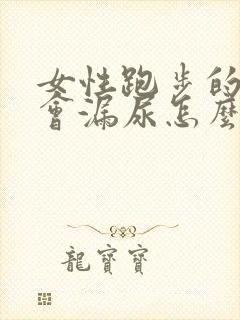 女性跑步的
會漏尿怎麼
龍寶寶